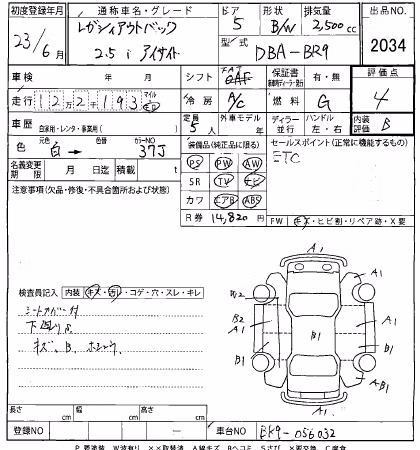 初度登録年月 通称車名・グレード ドア 形状 排気量 出品NO.
23/6月 レガシィアウトバック 2.5i アイサイト 5 B/W 2,500cc 2034
型式 DBA-BR9
車検 年 月 シフト FAT 保証書 有・無 評価点
走行 12万2千193 マイル km 冷房 A/C 燃料 G 4
車歴 自家用・レンタ・事業用( ) 定員 5人 外車モデル 年 ディーラー 並行 ハンドル 左・右 内装評価 B
色 元色 白→ 色替 カラーNO 37J 装備品(純正品に限る) セールスポイント(正常に機能するもの)
PS PW AW ETC
名義変更期限 月 日迄 積載 t SR TV ナビ
注意事項(欠品・修復・不具合箇所および状態) カワ エアB ABS
R券 14,820円 FW キズ・ヒビ割・リペア跡・X要
A1
A1 A1
W2
B2
A1 B1 A1
B1 B1
A-B1
A1
検査員記入 内装 キズ・汚レ・コゲ・穴・スレ・キレ
シートカバー付
下廻りサビ
キズ、B、
長さ cm 幅 cm 高さ cm
登録NO － 車台NO BR9-056032